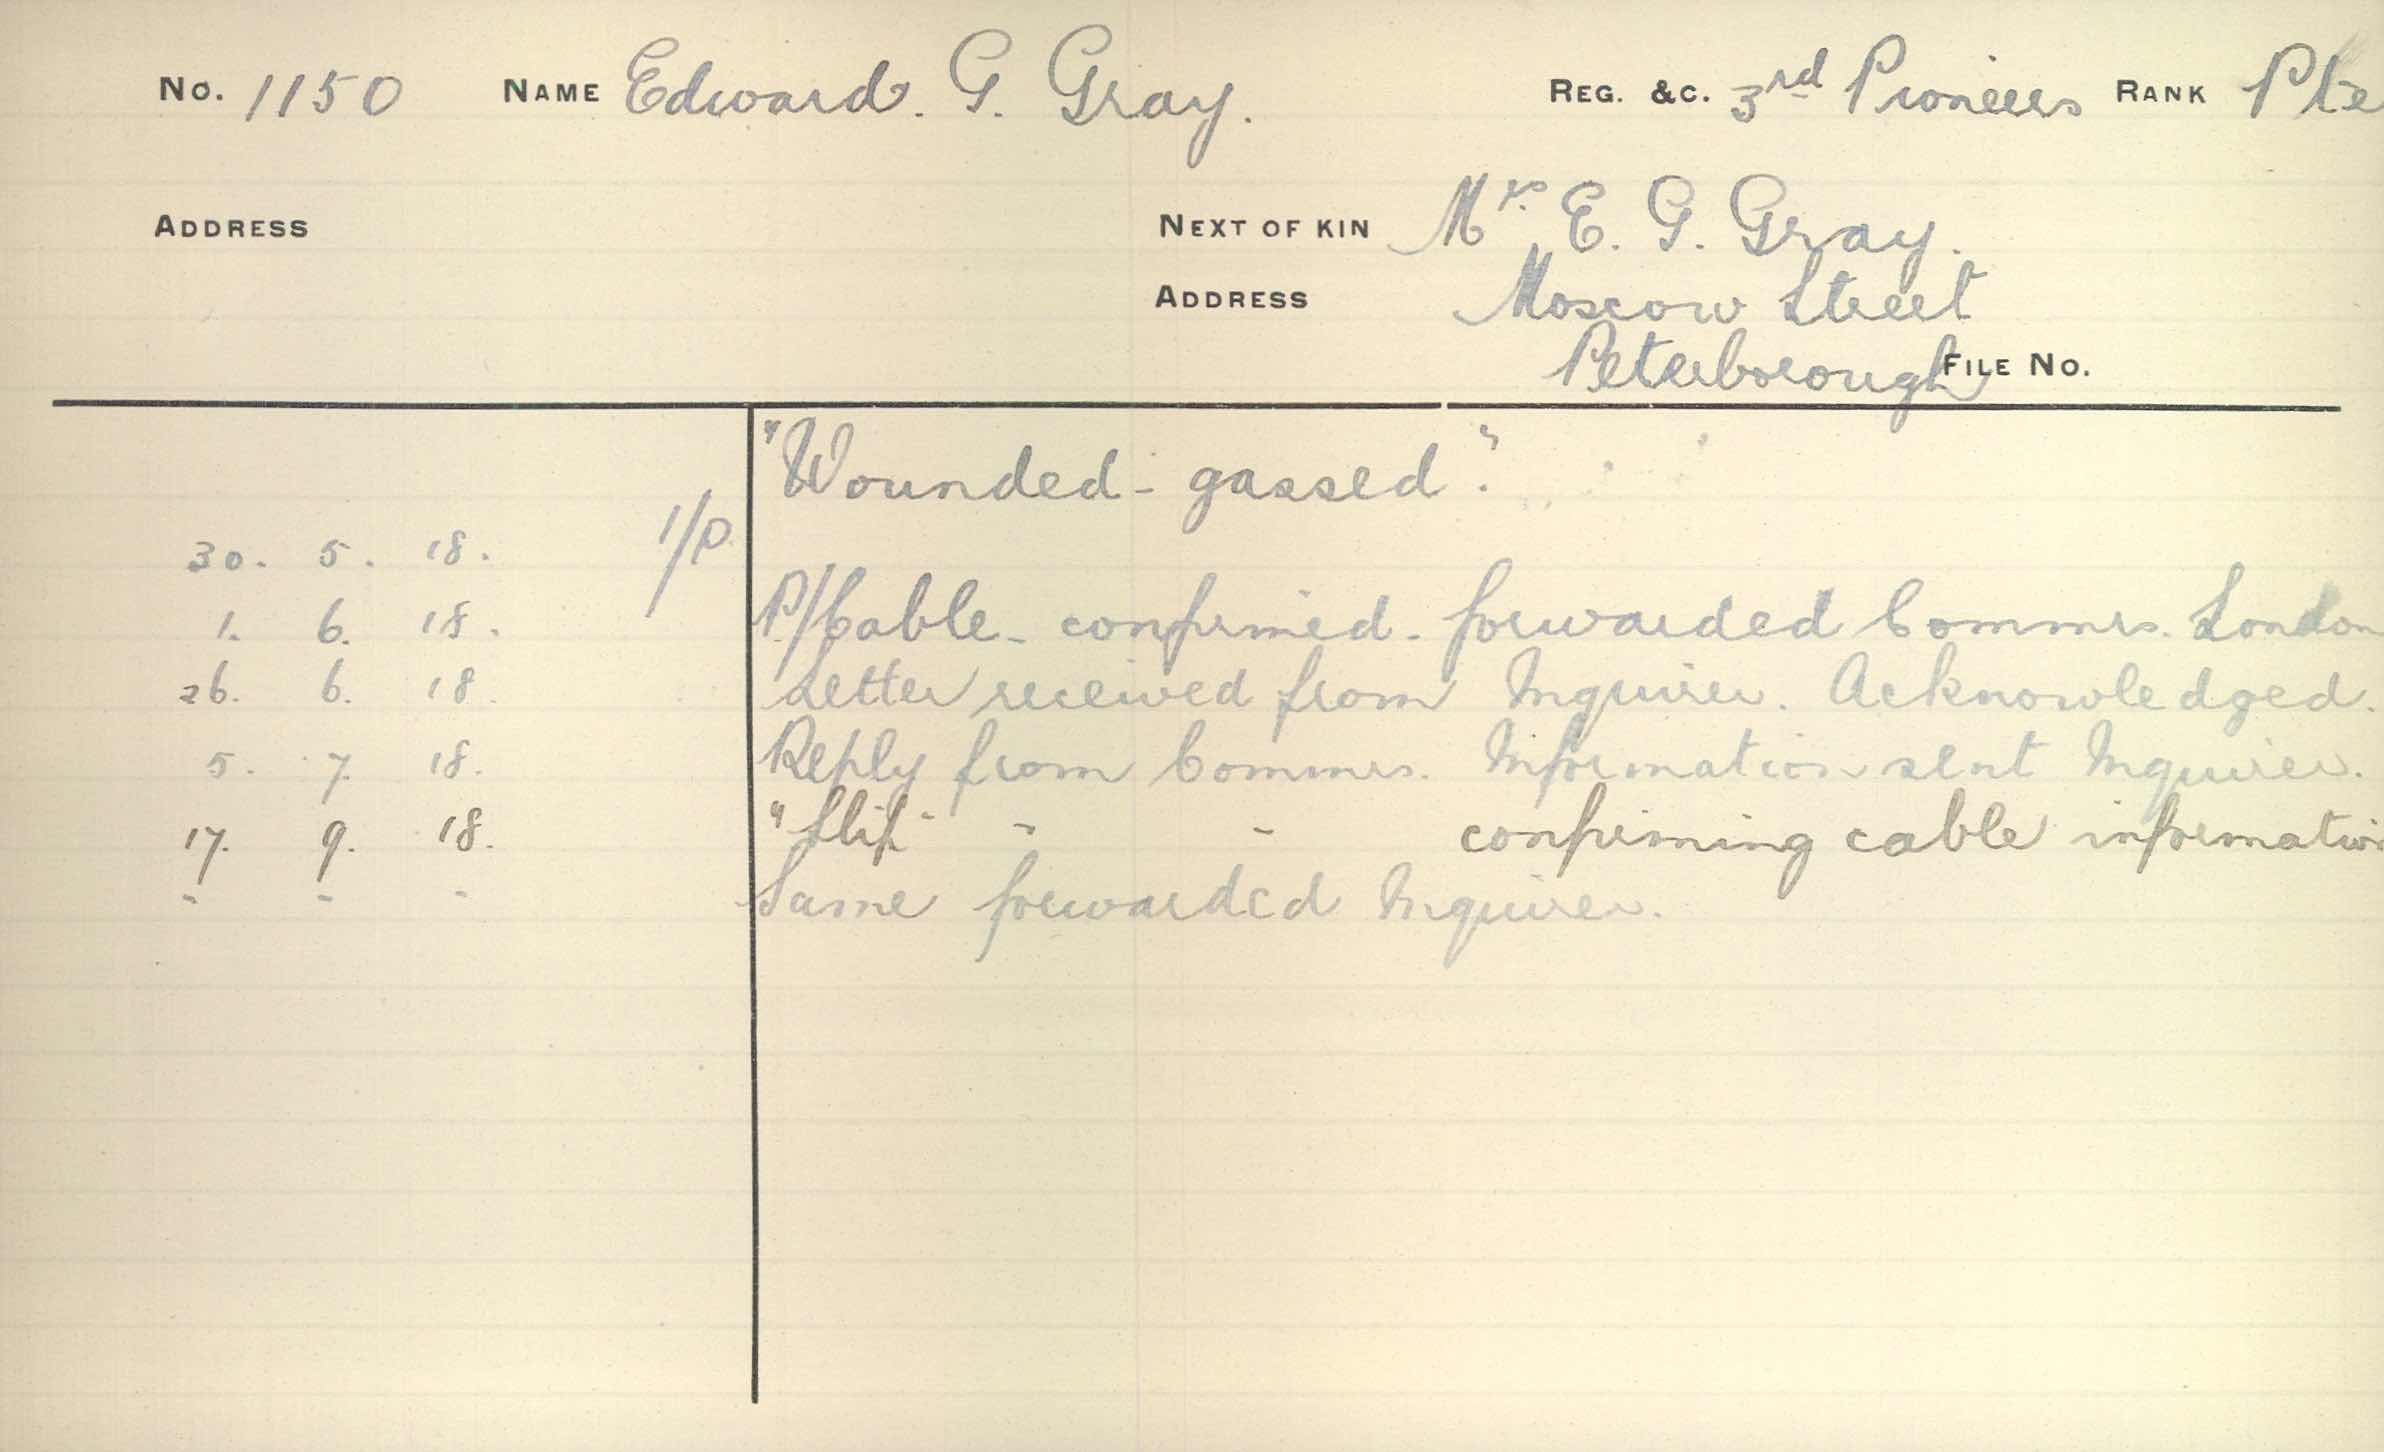 No. 1150 NAME Edward. G. Gray. REG. &C. 3rd Pioneers RANK Pte
ADDRESS NEXT OF KIN Mrs. E. G. Gray.
ADDRESS Moscow Street
Peterborough FILE No.
"Wounded - gassed".
30. 5. 18. 1/P.
1. 6. 18. P/Cable - confirmed - forwarded Commrs. London
26. 6. 18. Letter received from Inquirer. Acknowledged.
5. 7. 18. Reply from Commrs. Information sent Inquirer.
17. 9. 18. "Slip" " " confirming cable information
" " " Same forwarded Inquirer.